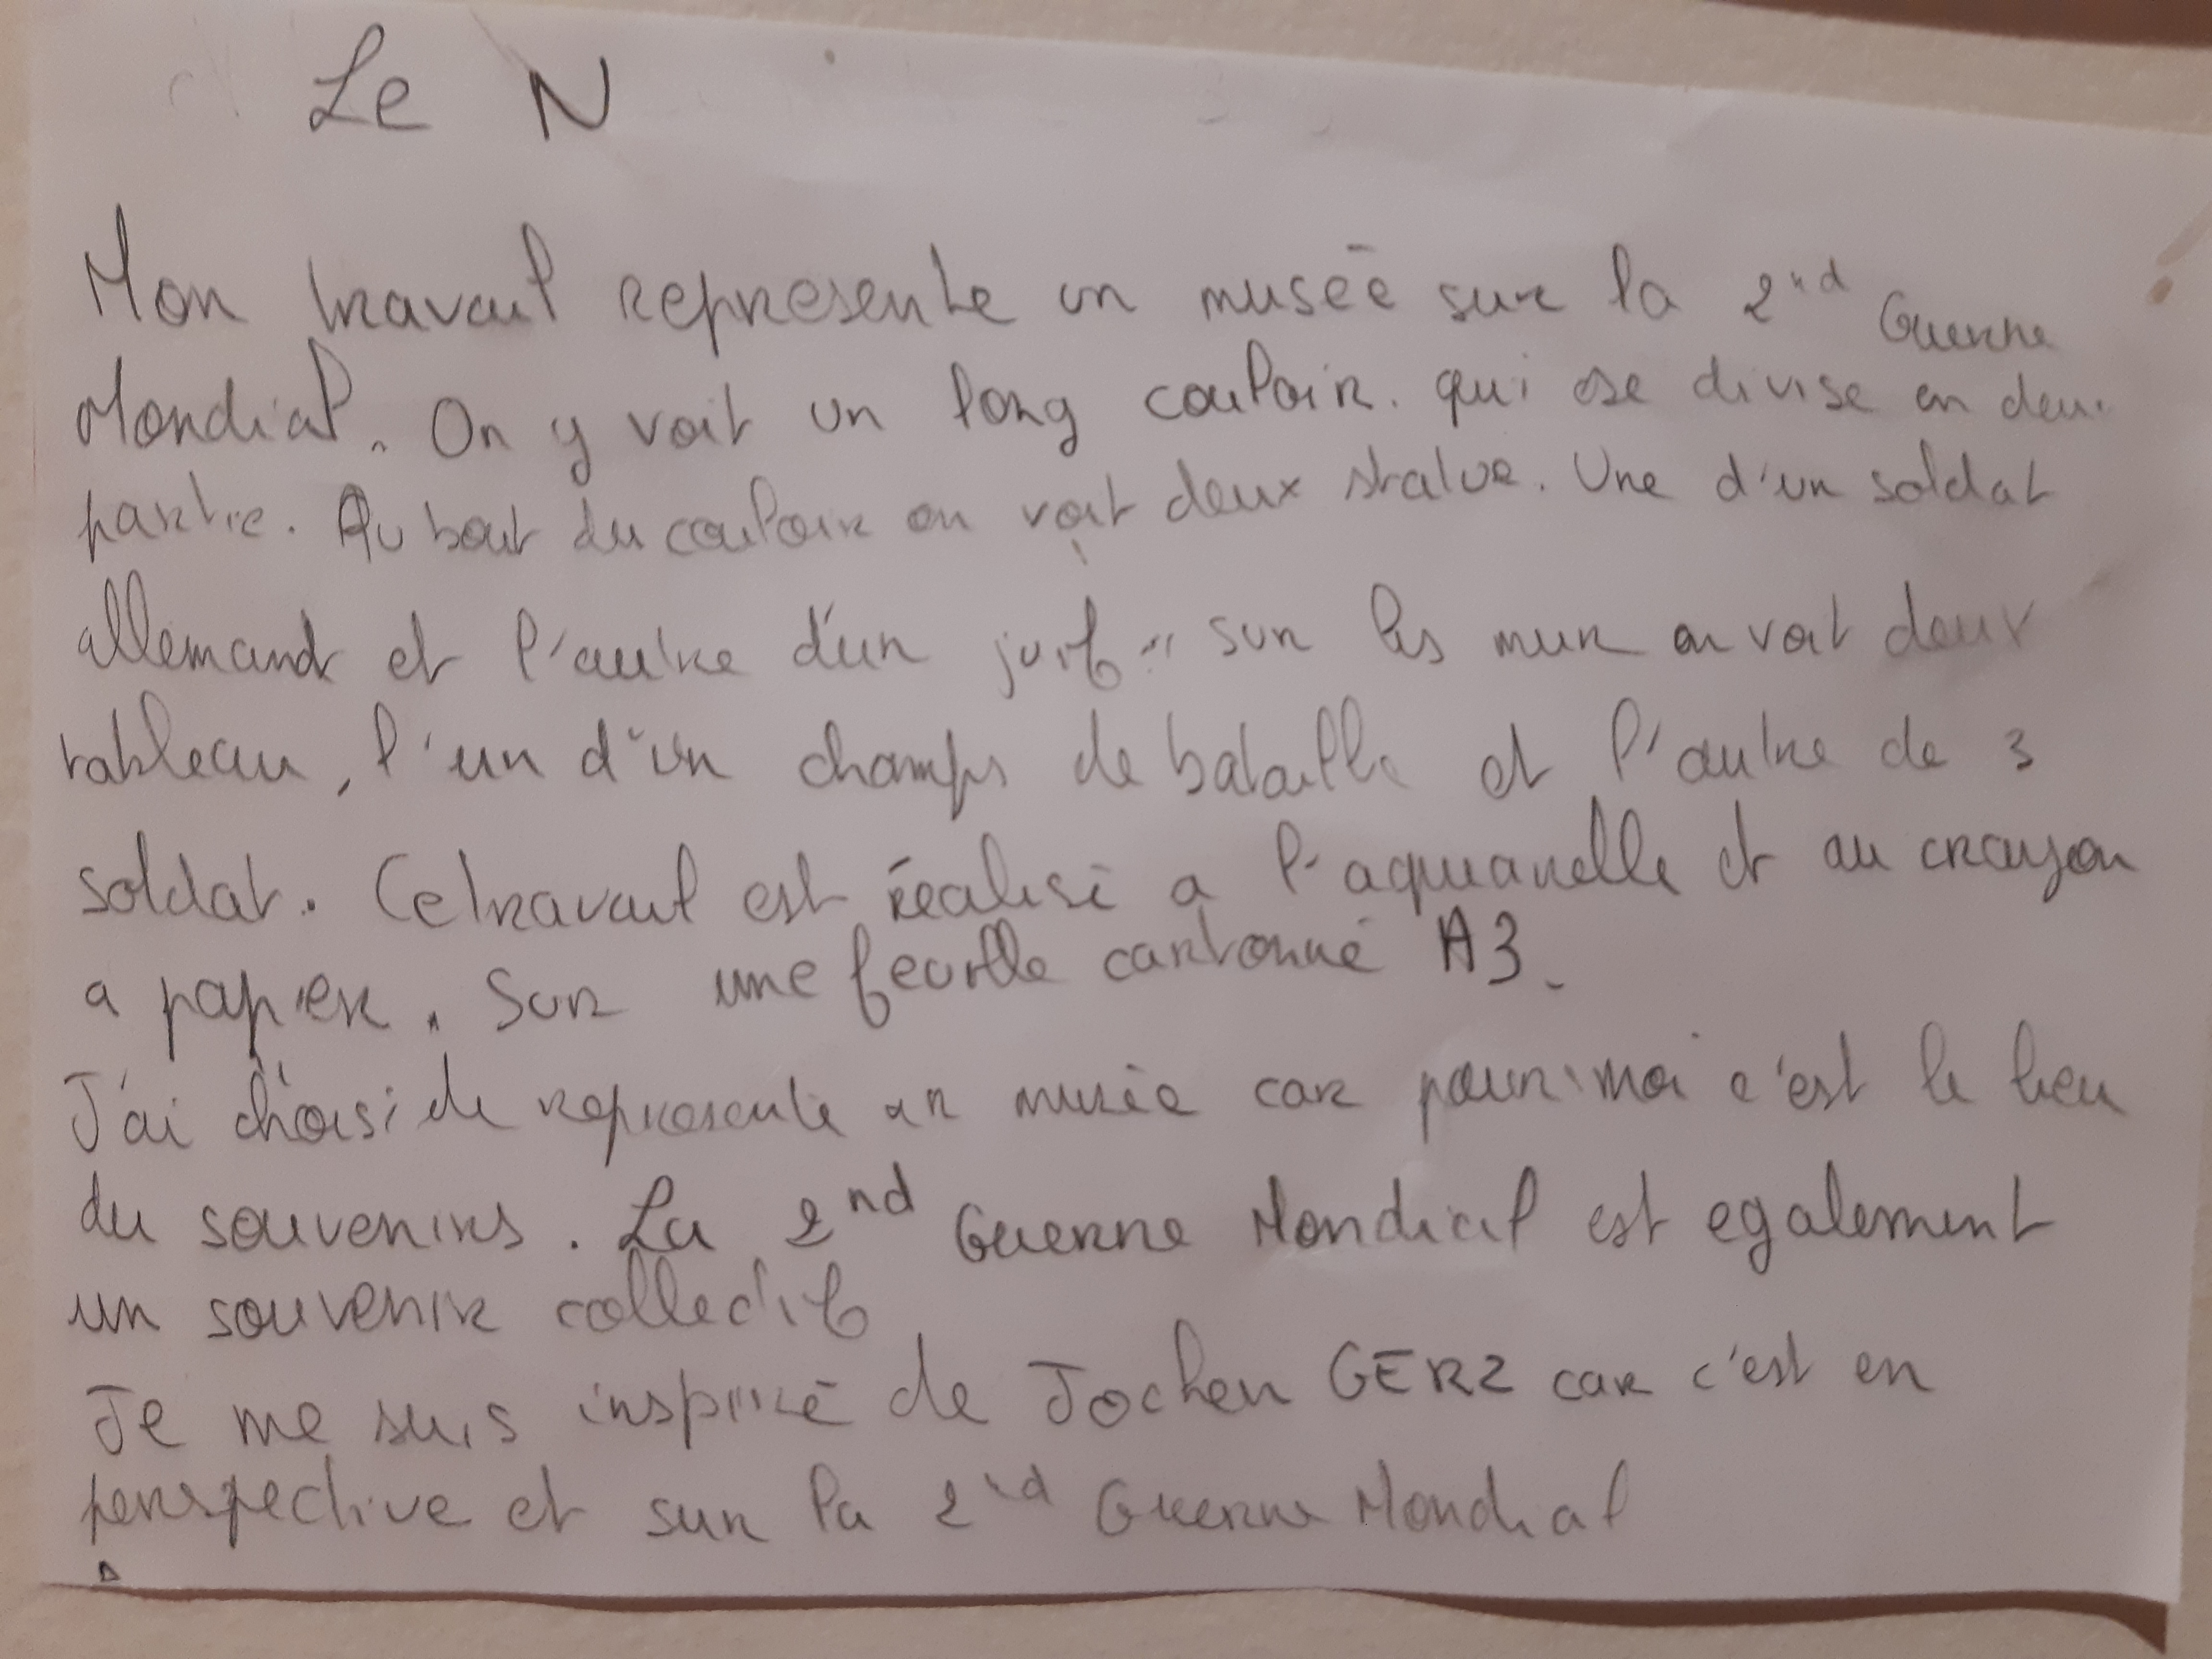 Le N
Mon travail represente un musée sur la 2nd Guerre
Mondial. On y voit un long couloir. qui se divise en deux
partie. Au bout du couloir on voit deux statue. Une d'un soldat
allemand et l'autre d'un juif. sur les mur on voit deux
tableau, l'un d'un champs de bataille et l'autre de 3
soldat. Ce travail est réalisé a l'aquarelle et au crayon
a papier. Sur une feuille cartonné A3.
J'ai choisi de representé un musée car pour moi c'est le lieu
du souvenirs. La 2nd Guerre Mondial est egalement
un souvenir collectif
Je me suis inspiré de Jochen GERZ car c'est en
perspective et sur la 2nd Guerre Mondial